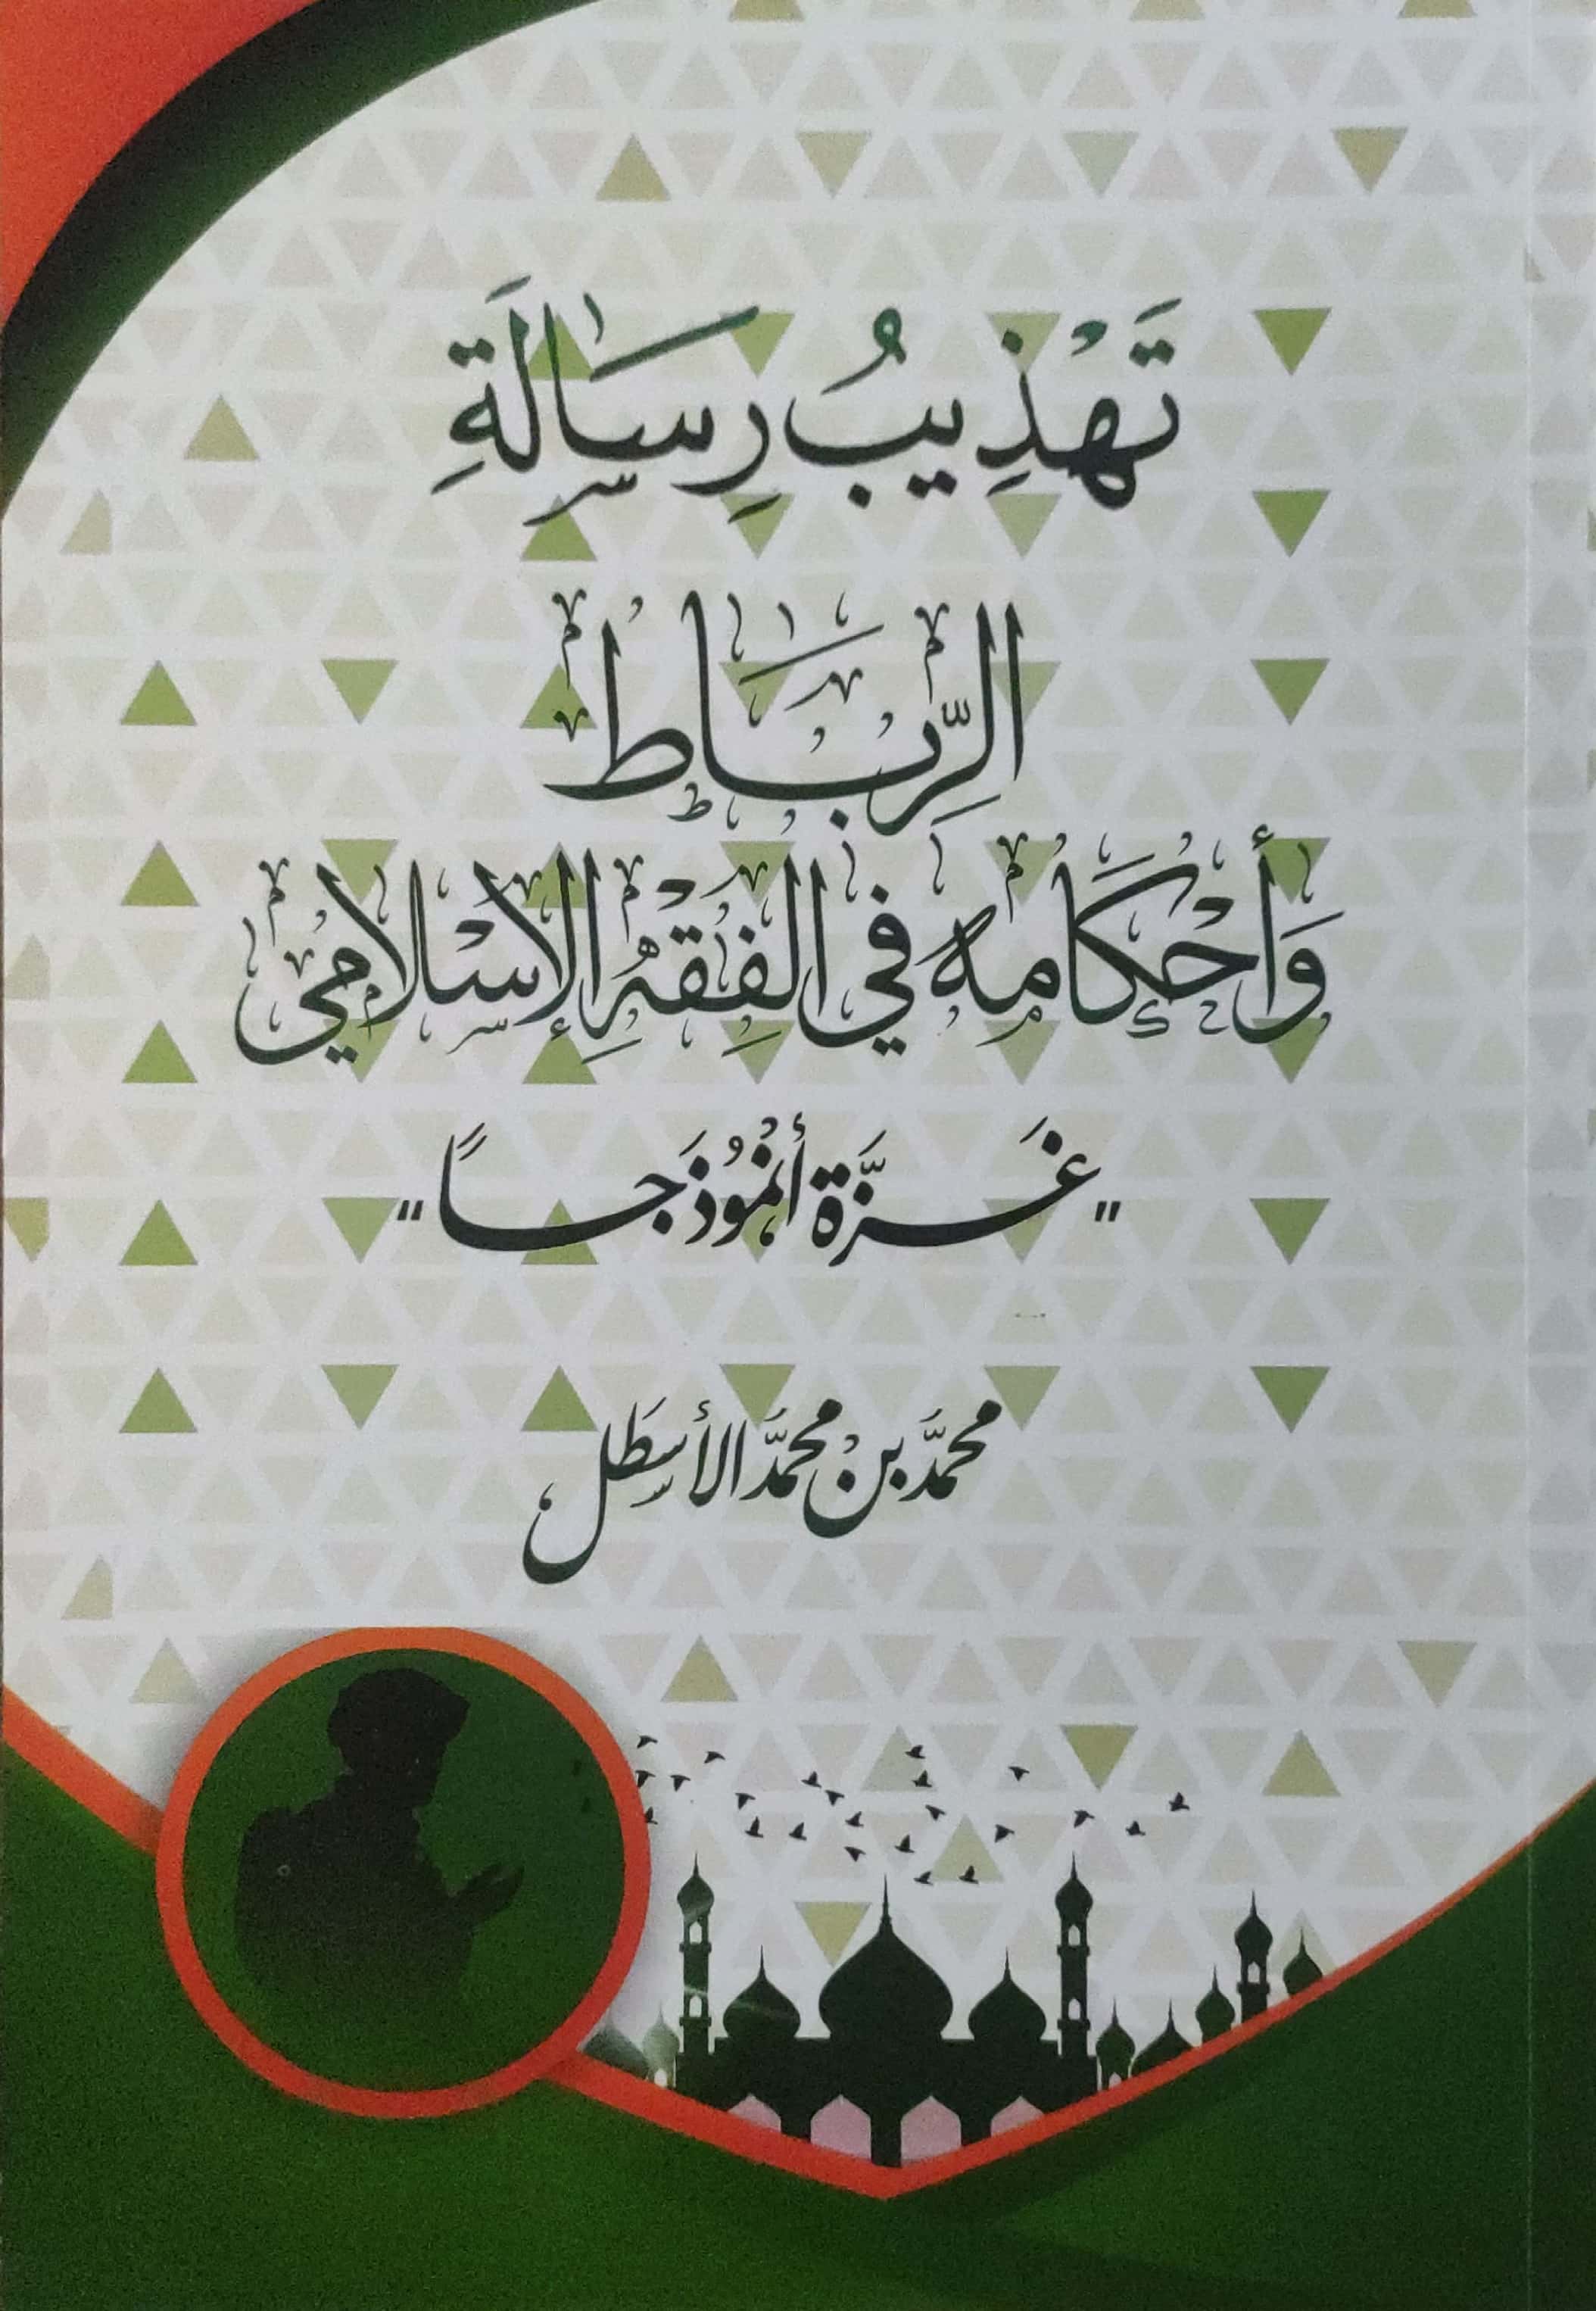 تَهْذِيبُ رِسَالَةِ
الرِّبَاط
وَأَحْكَامه في الفِقْهِ الإِسْلامي
"غَزَّة أنْمُوذَجاً"
محمَّد بنْ محمَّد الأسطَل